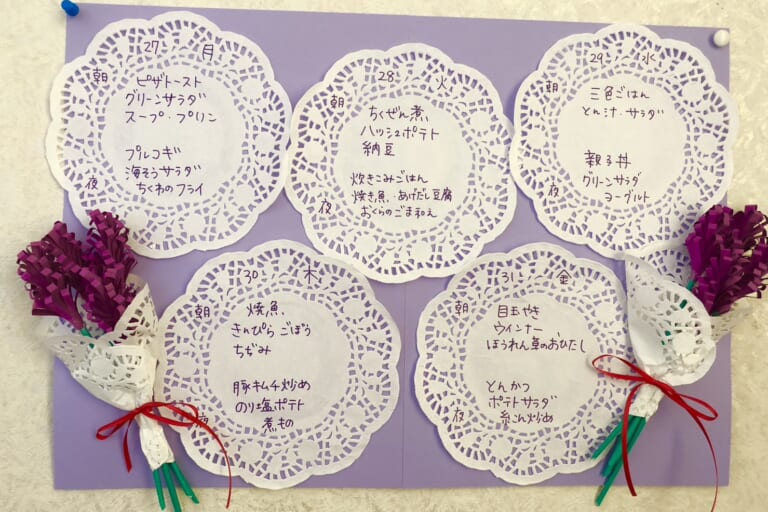 27 月
朝
ピザトースト
グリーンサラダ
スープ・プリン
夜
プルコギ
海そうサラダ
ちくわのフライ
28 火
朝
ちくぜん煮
ハッシュポテト
納豆
夜
炊きこみごはん
焼き魚、あげだし豆腐
おくらのごま和え
29 水
朝
三色ごはん
とん汁・サラダ
夜
親子丼
グリーンサラダ
ヨーグルト
30 木
朝
焼魚、
きんぴらごぼう
ちぢみ
夜
豚キムチ炒め
のり塩ポテト
煮もの
31 金
朝
目玉やき
ウインナー、
ほうれん草のおひたし
夜
とんかつ
ポテトサラダ
糸こん炒め